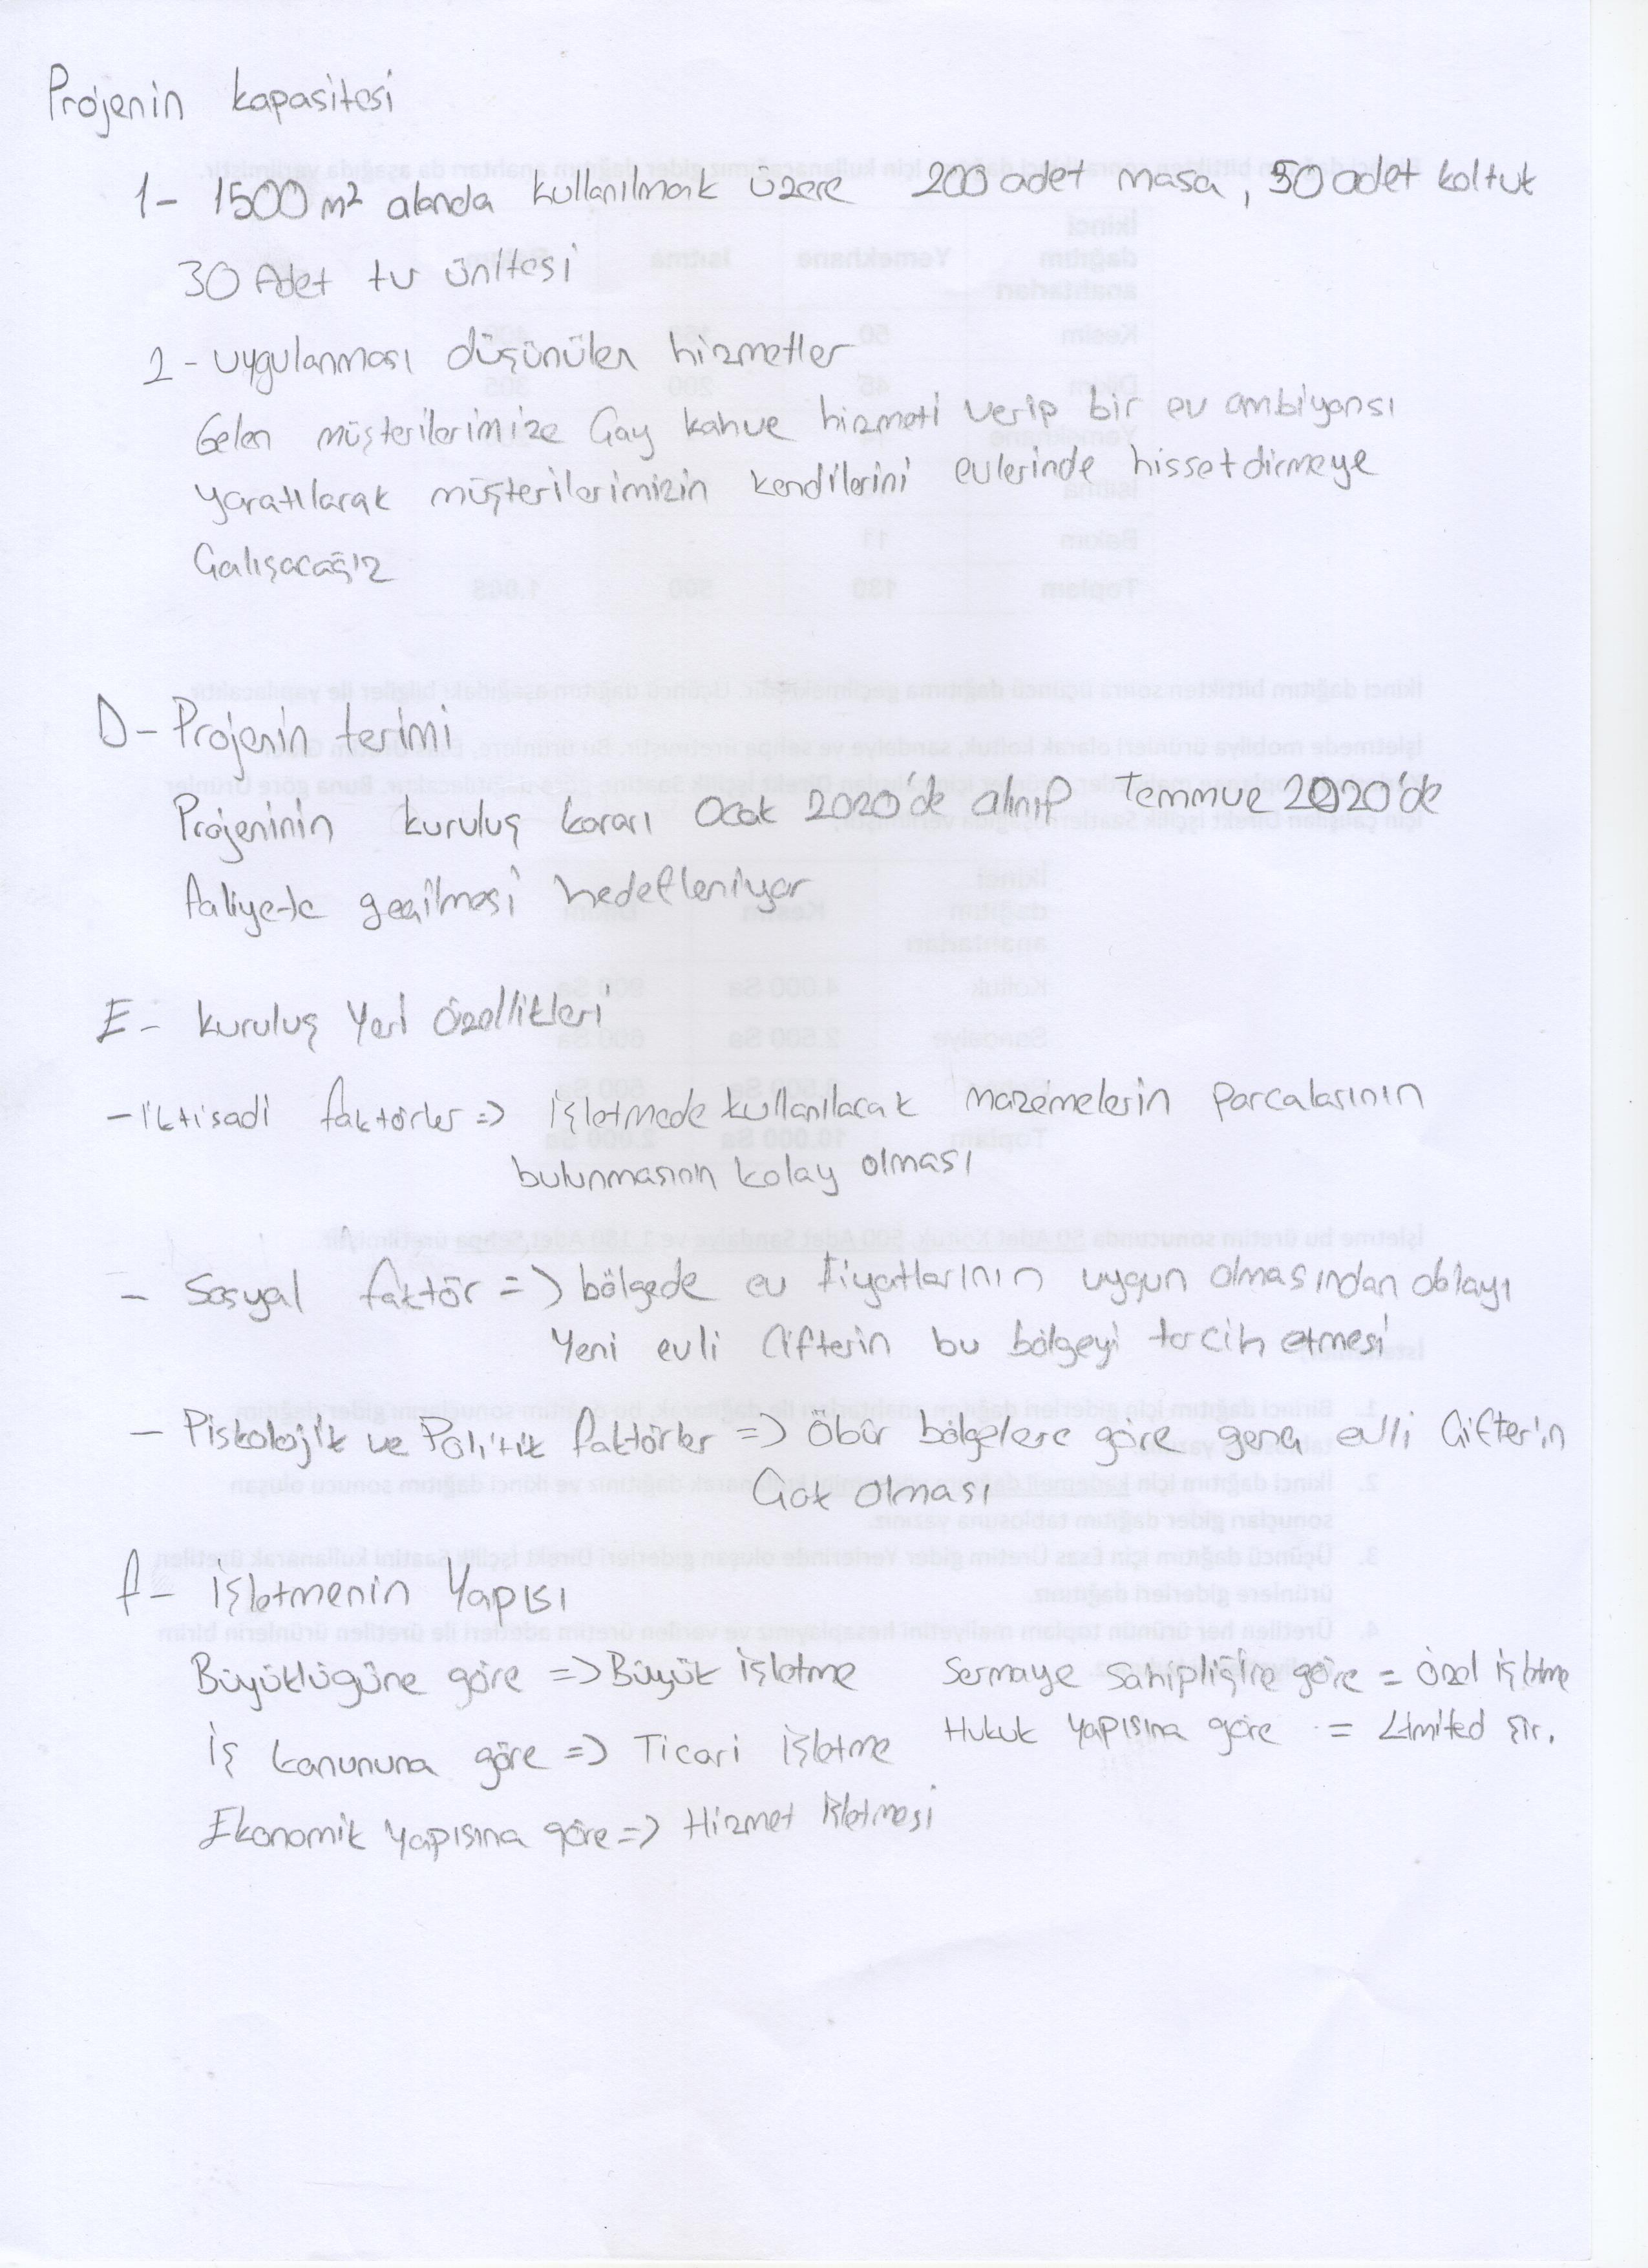 Projenin kapasitesi
1- 1500 m² alanda kullanılmak üzere 200 adet masa, 50 adet koltuk
30 Adet tv ünitesi
2- uygulanması düşünülen hizmetler
Gelen müşterilerimize Çay kahve hizmeti verip bir ev ambiyansı
yaratılarak müşterilerimizin kendilerini evlerinde hissetdirmeye
Çalışacağız
D- Projenin terimi
Projeninin kuruluş kararı Ocak 2020'de alınıp Temmuz 2020'de
faliyete geçilmesi hedefleniyor
E- kuruluş Yeri Özellikleri
- iktisadi faktörler => işletmede kullanılacak mazemelerin parcalarının
bulunmasının kolay olması
- Sosyal faktör => bölgede ev fiyatlarının uygun olmasından dolayı
Yeni evli Çifterin bu bölgeyi tercih etmesi
- Piskolojik ve Politik faktörler => Öbür bölgelere göre genç evli Çifter'in
Çok olması
f- işletmenin Yapısı
Büyüklügüne göre => Büyük işletme Sermaye sahipliğine göre = özel işletme
İş kanununa göre => Ticari işletme Hukuk yapısına göre = Limited şir.
Ekonomik yapısına göre => Hizmet işletmesi